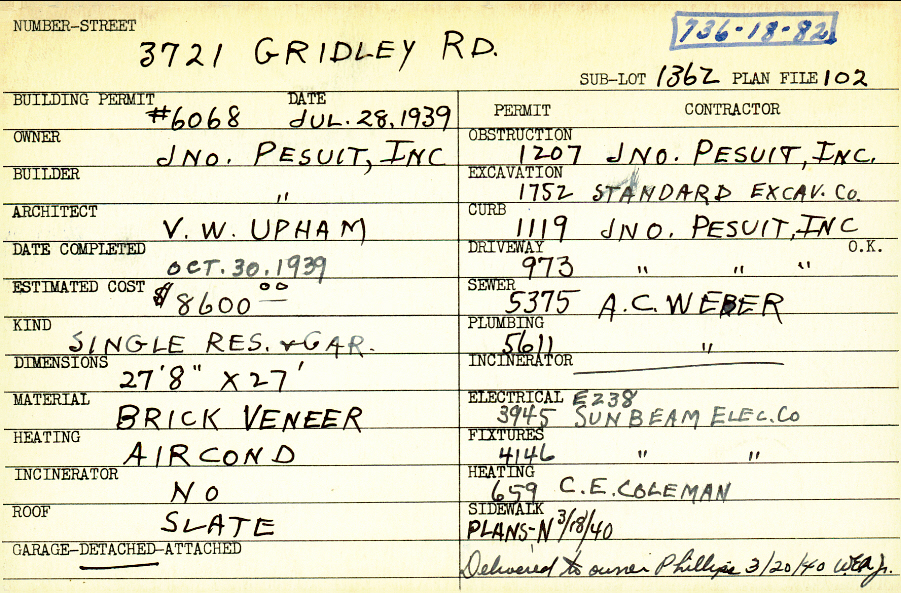 NUMBER-STREET
3721 GRIDLEY RD.
736-18-82
SUB-LOT 1362 PLAN FILE 102
BUILDING PERMIT #6068 DATE JUL. 28, 1939
OWNER JNO. PESUIT, INC
BUILDER "
ARCHITECT V. W. UPHAM
DATE COMPLETED OCT. 30. 1939
ESTIMATED COST $8600 00
KIND SINGLE RES. & GAR.
DIMENSIONS 27'8" X 27'
MATERIAL BRICK VENEER
HEATING AIR COND
INCINERATOR NO
ROOF SLATE
GARAGE-DETACHED-ATTACHED
PERMIT CONTRACTOR
OBSTRUCTION 1207 JNO. PESUIT, INC.
EXCAVATION 1752 STANDARD EXCAV. CO.
CURB 1119 JNO. PESUIT, INC
DRIVEWAY 973 " " " O.K.
SEWER 5375 A.C. WEBER
PLUMBING 5611 "
INCINERATOR
ELECTRICAL E238
3945 SUNBEAM ELEC. CO
FIXTURES 4146 " "
HEATING 659 C.E. COLEMAN
SIDEWALK
PLANS-N 3/18/40
Delivered to owner Phillips 3/20/40